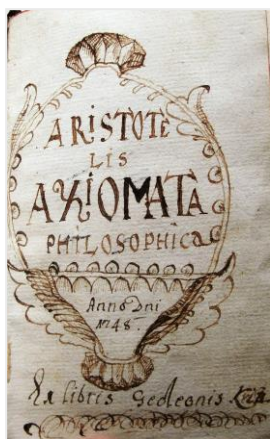 ARISTOTE
LIS
AXIOMATA
PHILOSOPHICA
Anno Dni
1748.
Ex libris Gedeonis